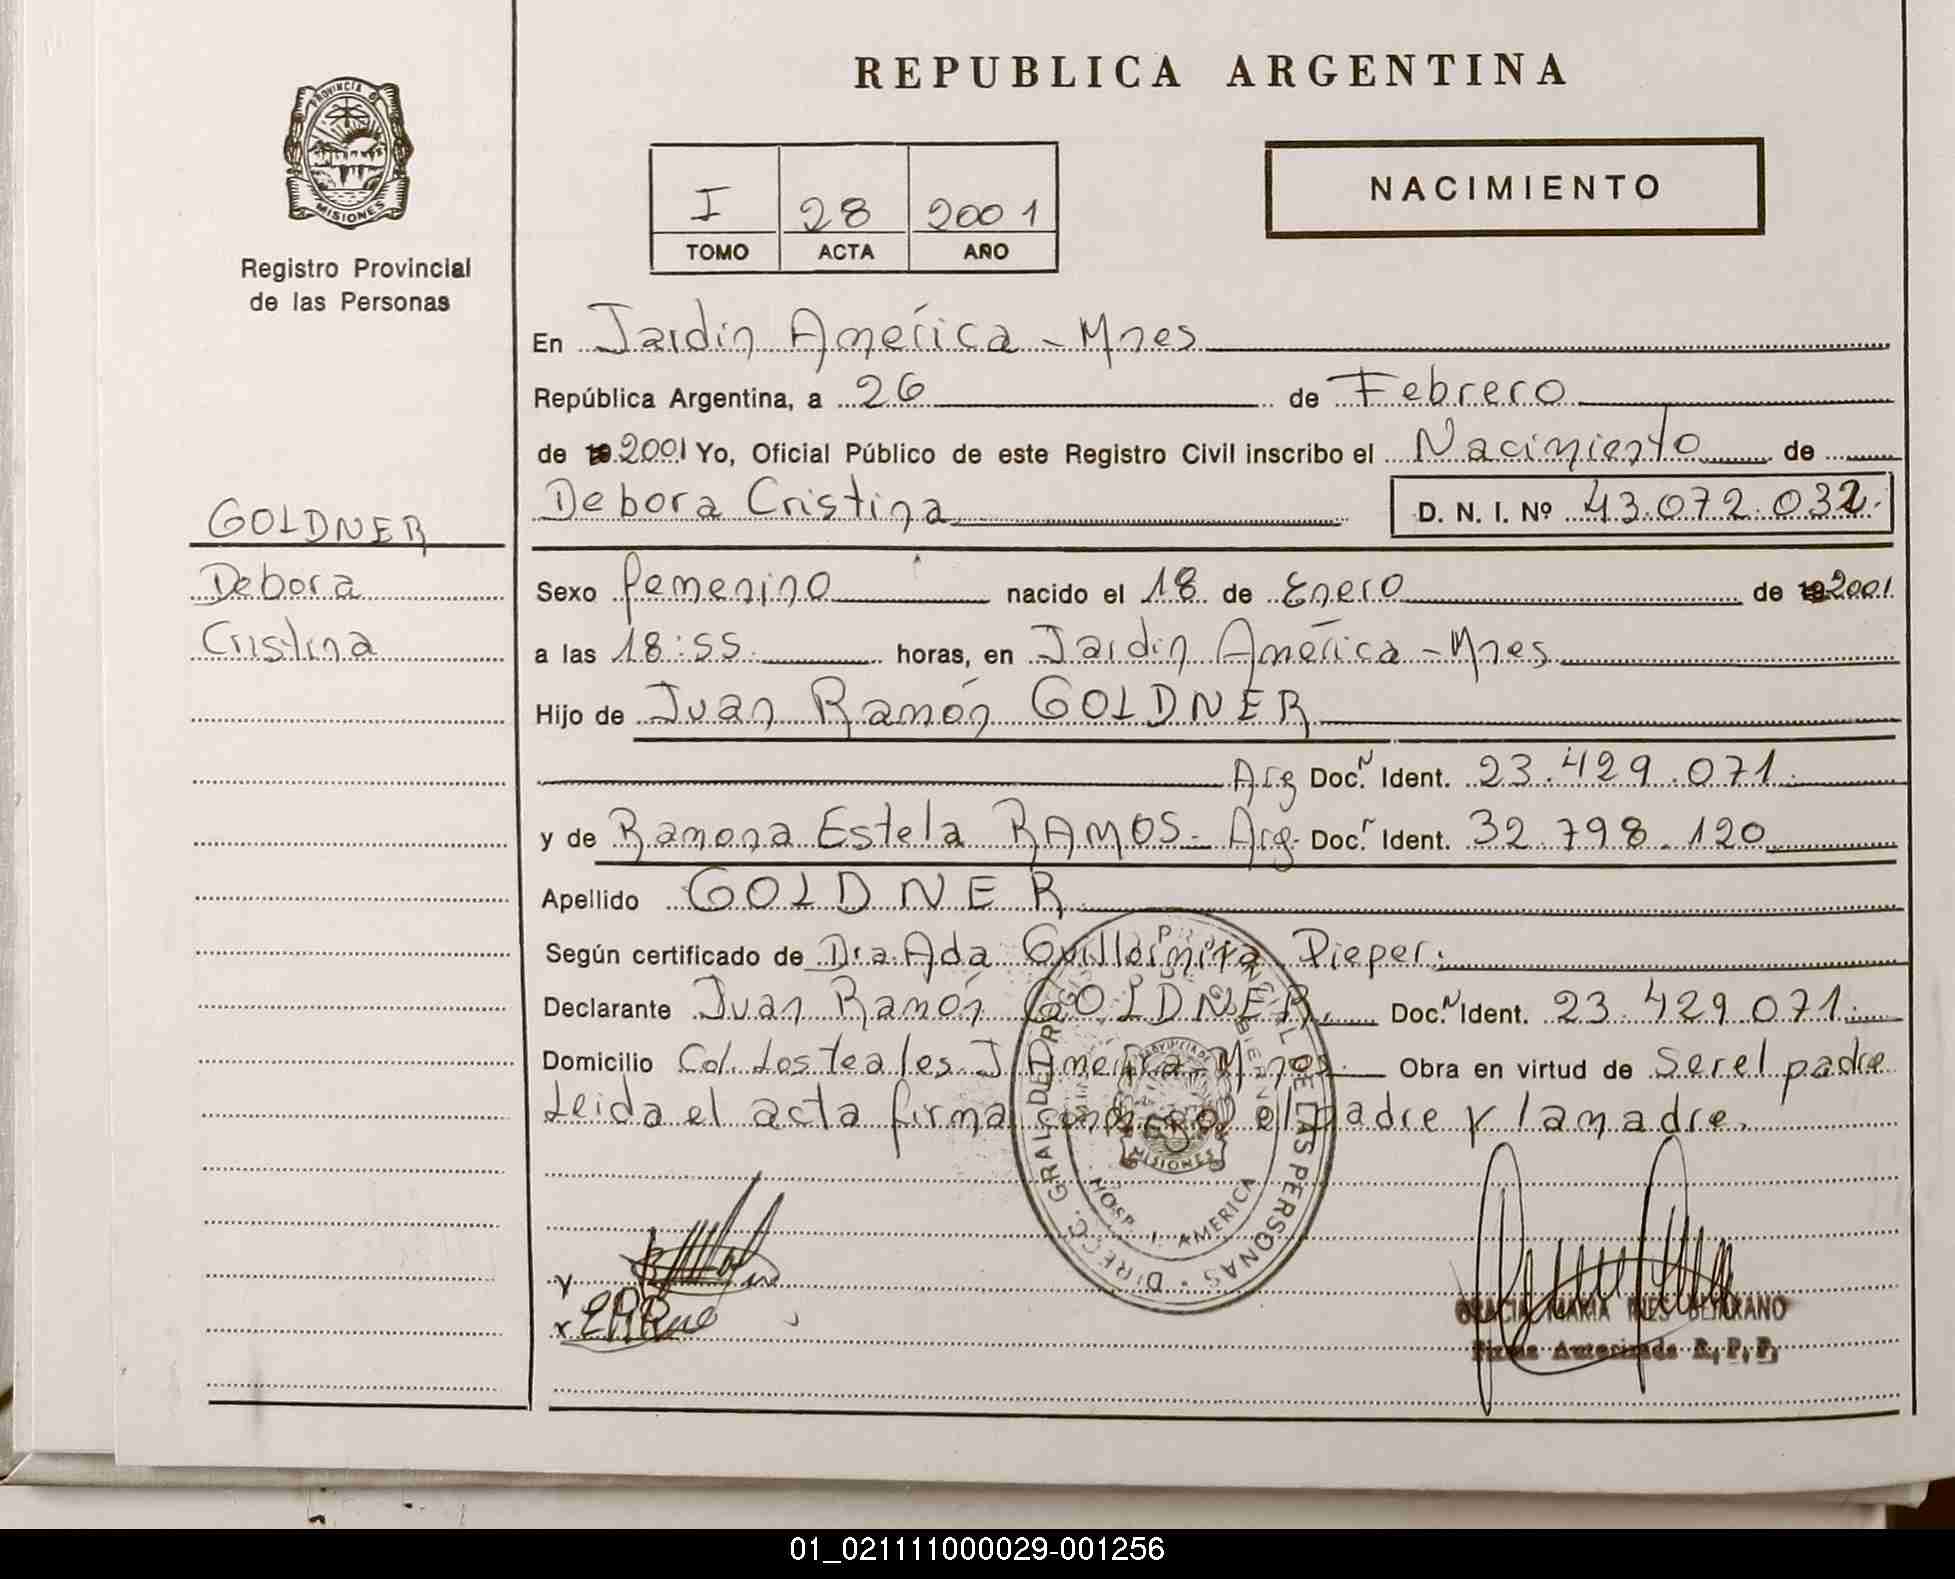 REPUBLICA ARGENTINA
PROVINCIA D
MISIONES
Registro Provincial
de las Personas
I 28 2001
TOMO ACTA AÑO
NACIMIENTO
En Jardín América - Mnes
República Argentina, a 26 de Febrero
de 19 2001 Yo, Oficial Público de este Registro Civil inscribo el Nacimiento de
Debora Cristina D. N. I. Nº 43.072.032.
GOLDNER
Debora
Cristina
Sexo femenino nacido el 18 de Enero de 19 2001
a las 18:55. horas, en Jardín América - Mnes
Hijo de Juan Ramón GOLDNER
Arg Doc.N Ident. 23.429.071.
y de Ramona Estela RAMOS.- Arg. Doc. Ident. 32.798.120
Apellido GOLDNER.
Según certificado de Dra. Ada Guillermina Pieper.
Declarante Juan Ramón GOLDNER. Doc.N Ident. 23.429.071.
Domicilio Col. Los teales J. América Mnes. Obra en virtud de Ser el padre
Leida el acta firma conmigo el padre y la madre.
DIRECC. GRAL. DEL REGISTRO PROVINCIAL DE LAS PERSONAS
MISIONES
HOSP. J. AMERICA
GRACIA MARIA INES BELGRANO
Firma Autorizada R. P. P.
01_021111000029-001256